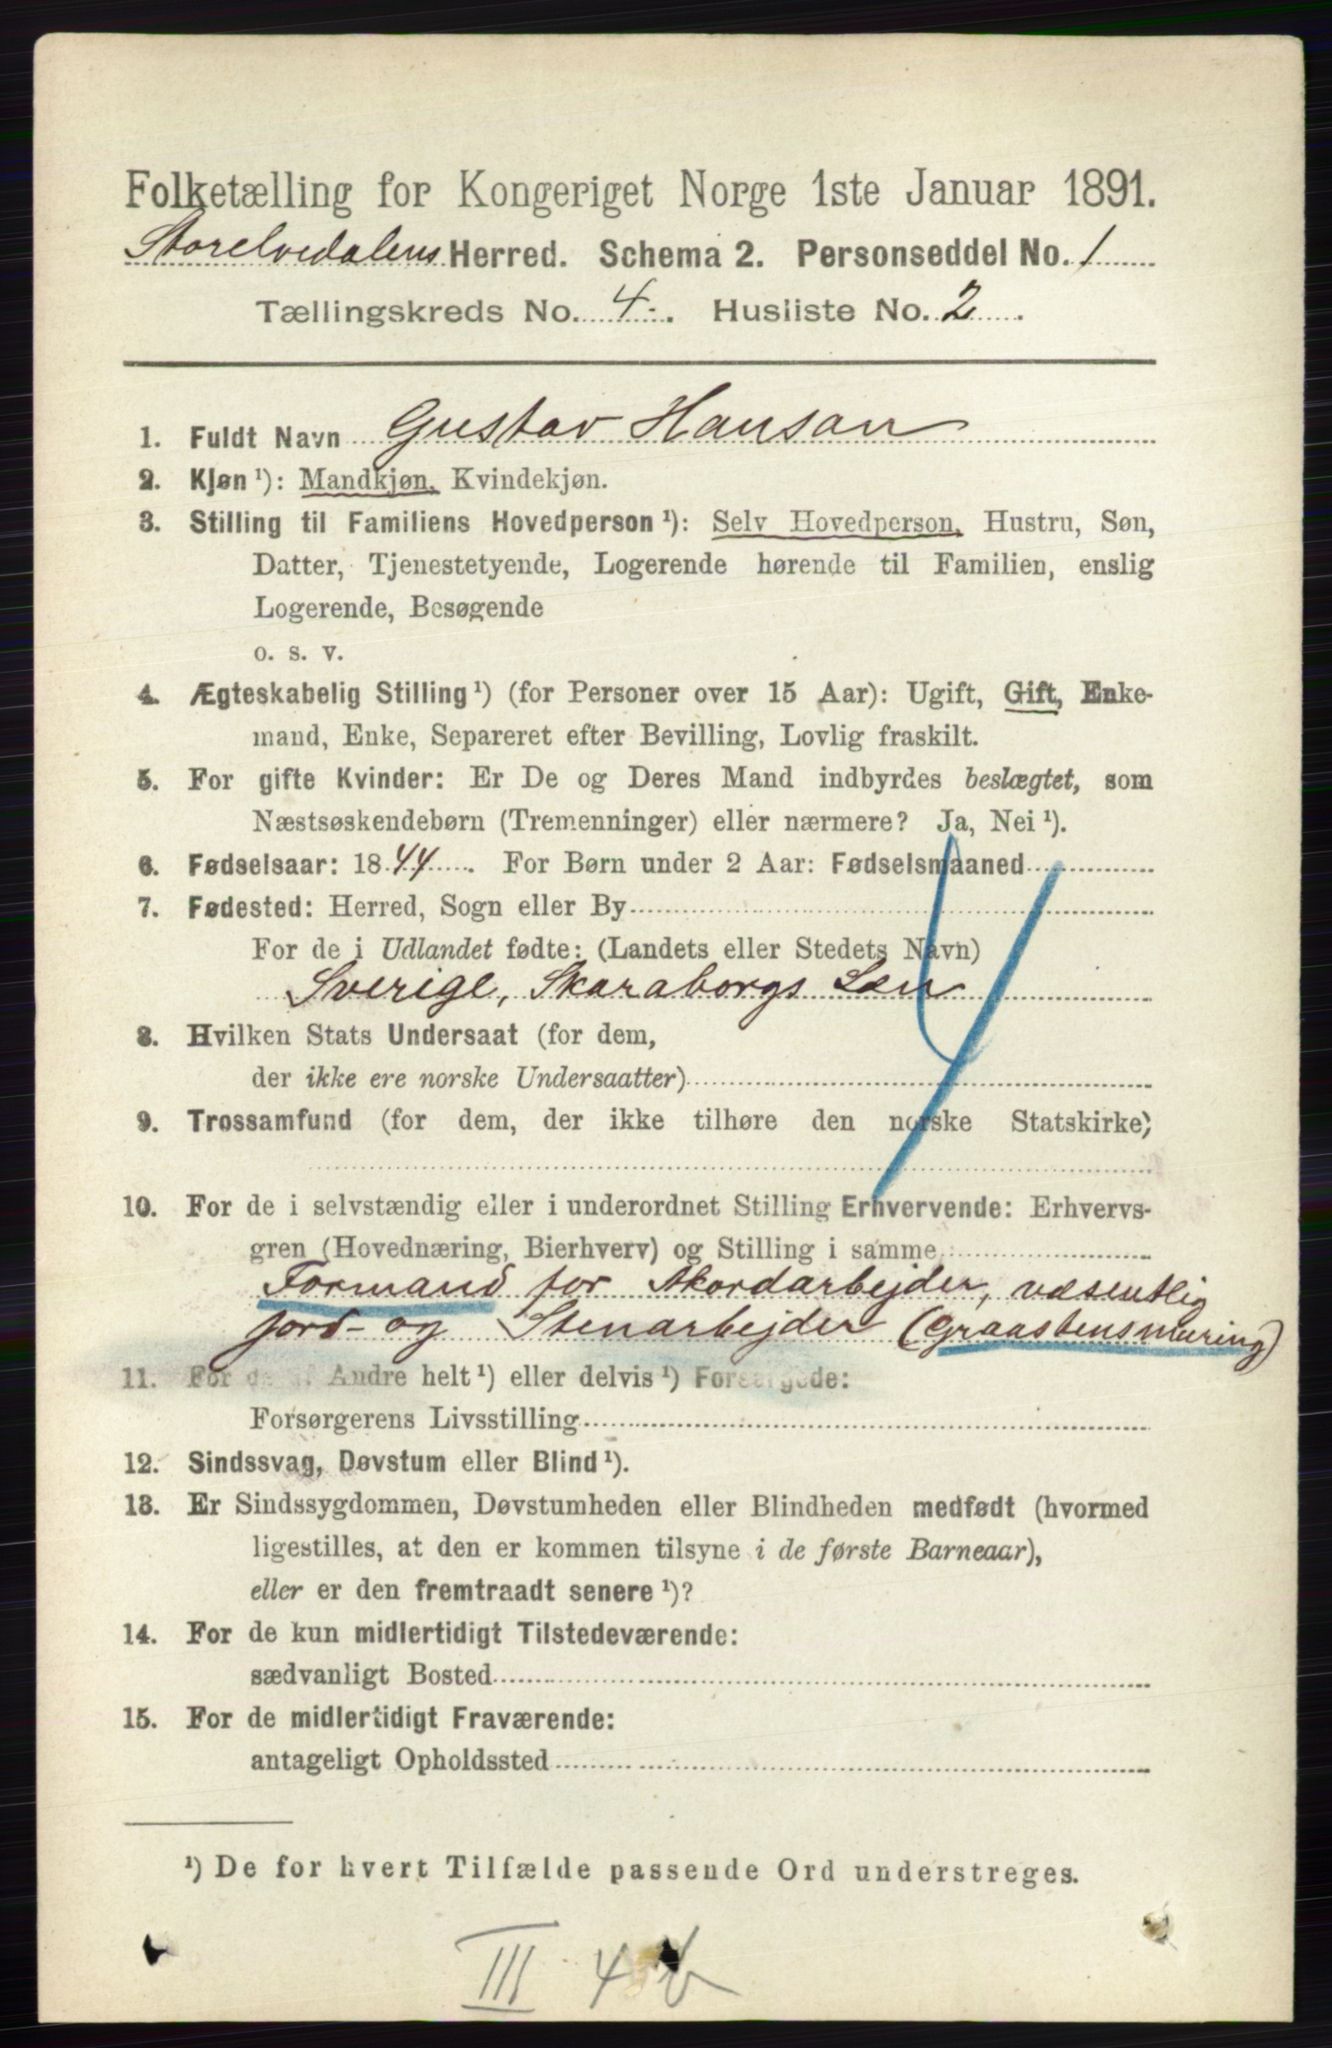 Folketælling for Kongeriget Norge 1ste Januar 1891.
Storelvedalens Herred. Schema 2. Personseddel No. 1
Tællingskreds No. 4. Husliste No. 2.
1. Fuldt Navn Gustav Hansan
2. Kjøn¹): Mandkjøn, Kvindekjøn.
3. Stilling til Familiens Hovedperson¹): Selv Hovedperson, Hustru, Søn,
Datter, Tjenestetyende, Logerende hørende til Familien, enslig
Logerende, Besøgende
o. s. v.
4. Ægteskabelig Stilling¹) (for Personer over 15 Aar): Ugift, Gift, Enke-
mand, Enke, Separeret efter Bevilling, Lovlig fraskilt.
5. For gifte Kvinder: Er De og Deres Mand indbyrdes beslægtet, som
Næstsøskendebørn (Tremenninger) eller nærmere? Ja, Nei¹).
6. Fødselsaar: 1844. For Børn under 2 Aar: Fødselsmaaned
7. Fødested: Herred, Sogn eller By
For de i Udlandet fødte: (Landets eller Stedets Navn)
Sverige, Skaraborgs Len
8. Hvilken Stats Undersaat (for dem,
der ikke ere norske Undersaatter)
9. Trossamfund (for dem, der ikke tilhøre den norske Statskirke)
4
10. For de i selvstændig eller i underordnet Stilling Erhvervende: Erhvervs-
gren (Hovednæring, Bierhverv) og Stilling i samme
Formand for Akordarbejder, væsentlig
jord- og Stenarbejder (Graastensmuring)
11. For de af Andre helt¹) eller delvis¹) Forsørgede:
Forsørgerens Livsstilling
12. Sindssvag, Døvstum eller Blind¹).
13. Er Sindssygdommen, Døvstumheden eller Blindheden medfødt (hvormed
ligestilles, at den er kommen tilsyne i de første Barneaar),
eller er den fremtraadt senere¹)?
14. For de kun midlertidigt Tilstedeværende:
sædvanligt Bosted
15. For de midlertidigt Fraværende:
antageligt Opholdssted
¹) De for hvert Tilfælde passende Ord understreges.
III 4